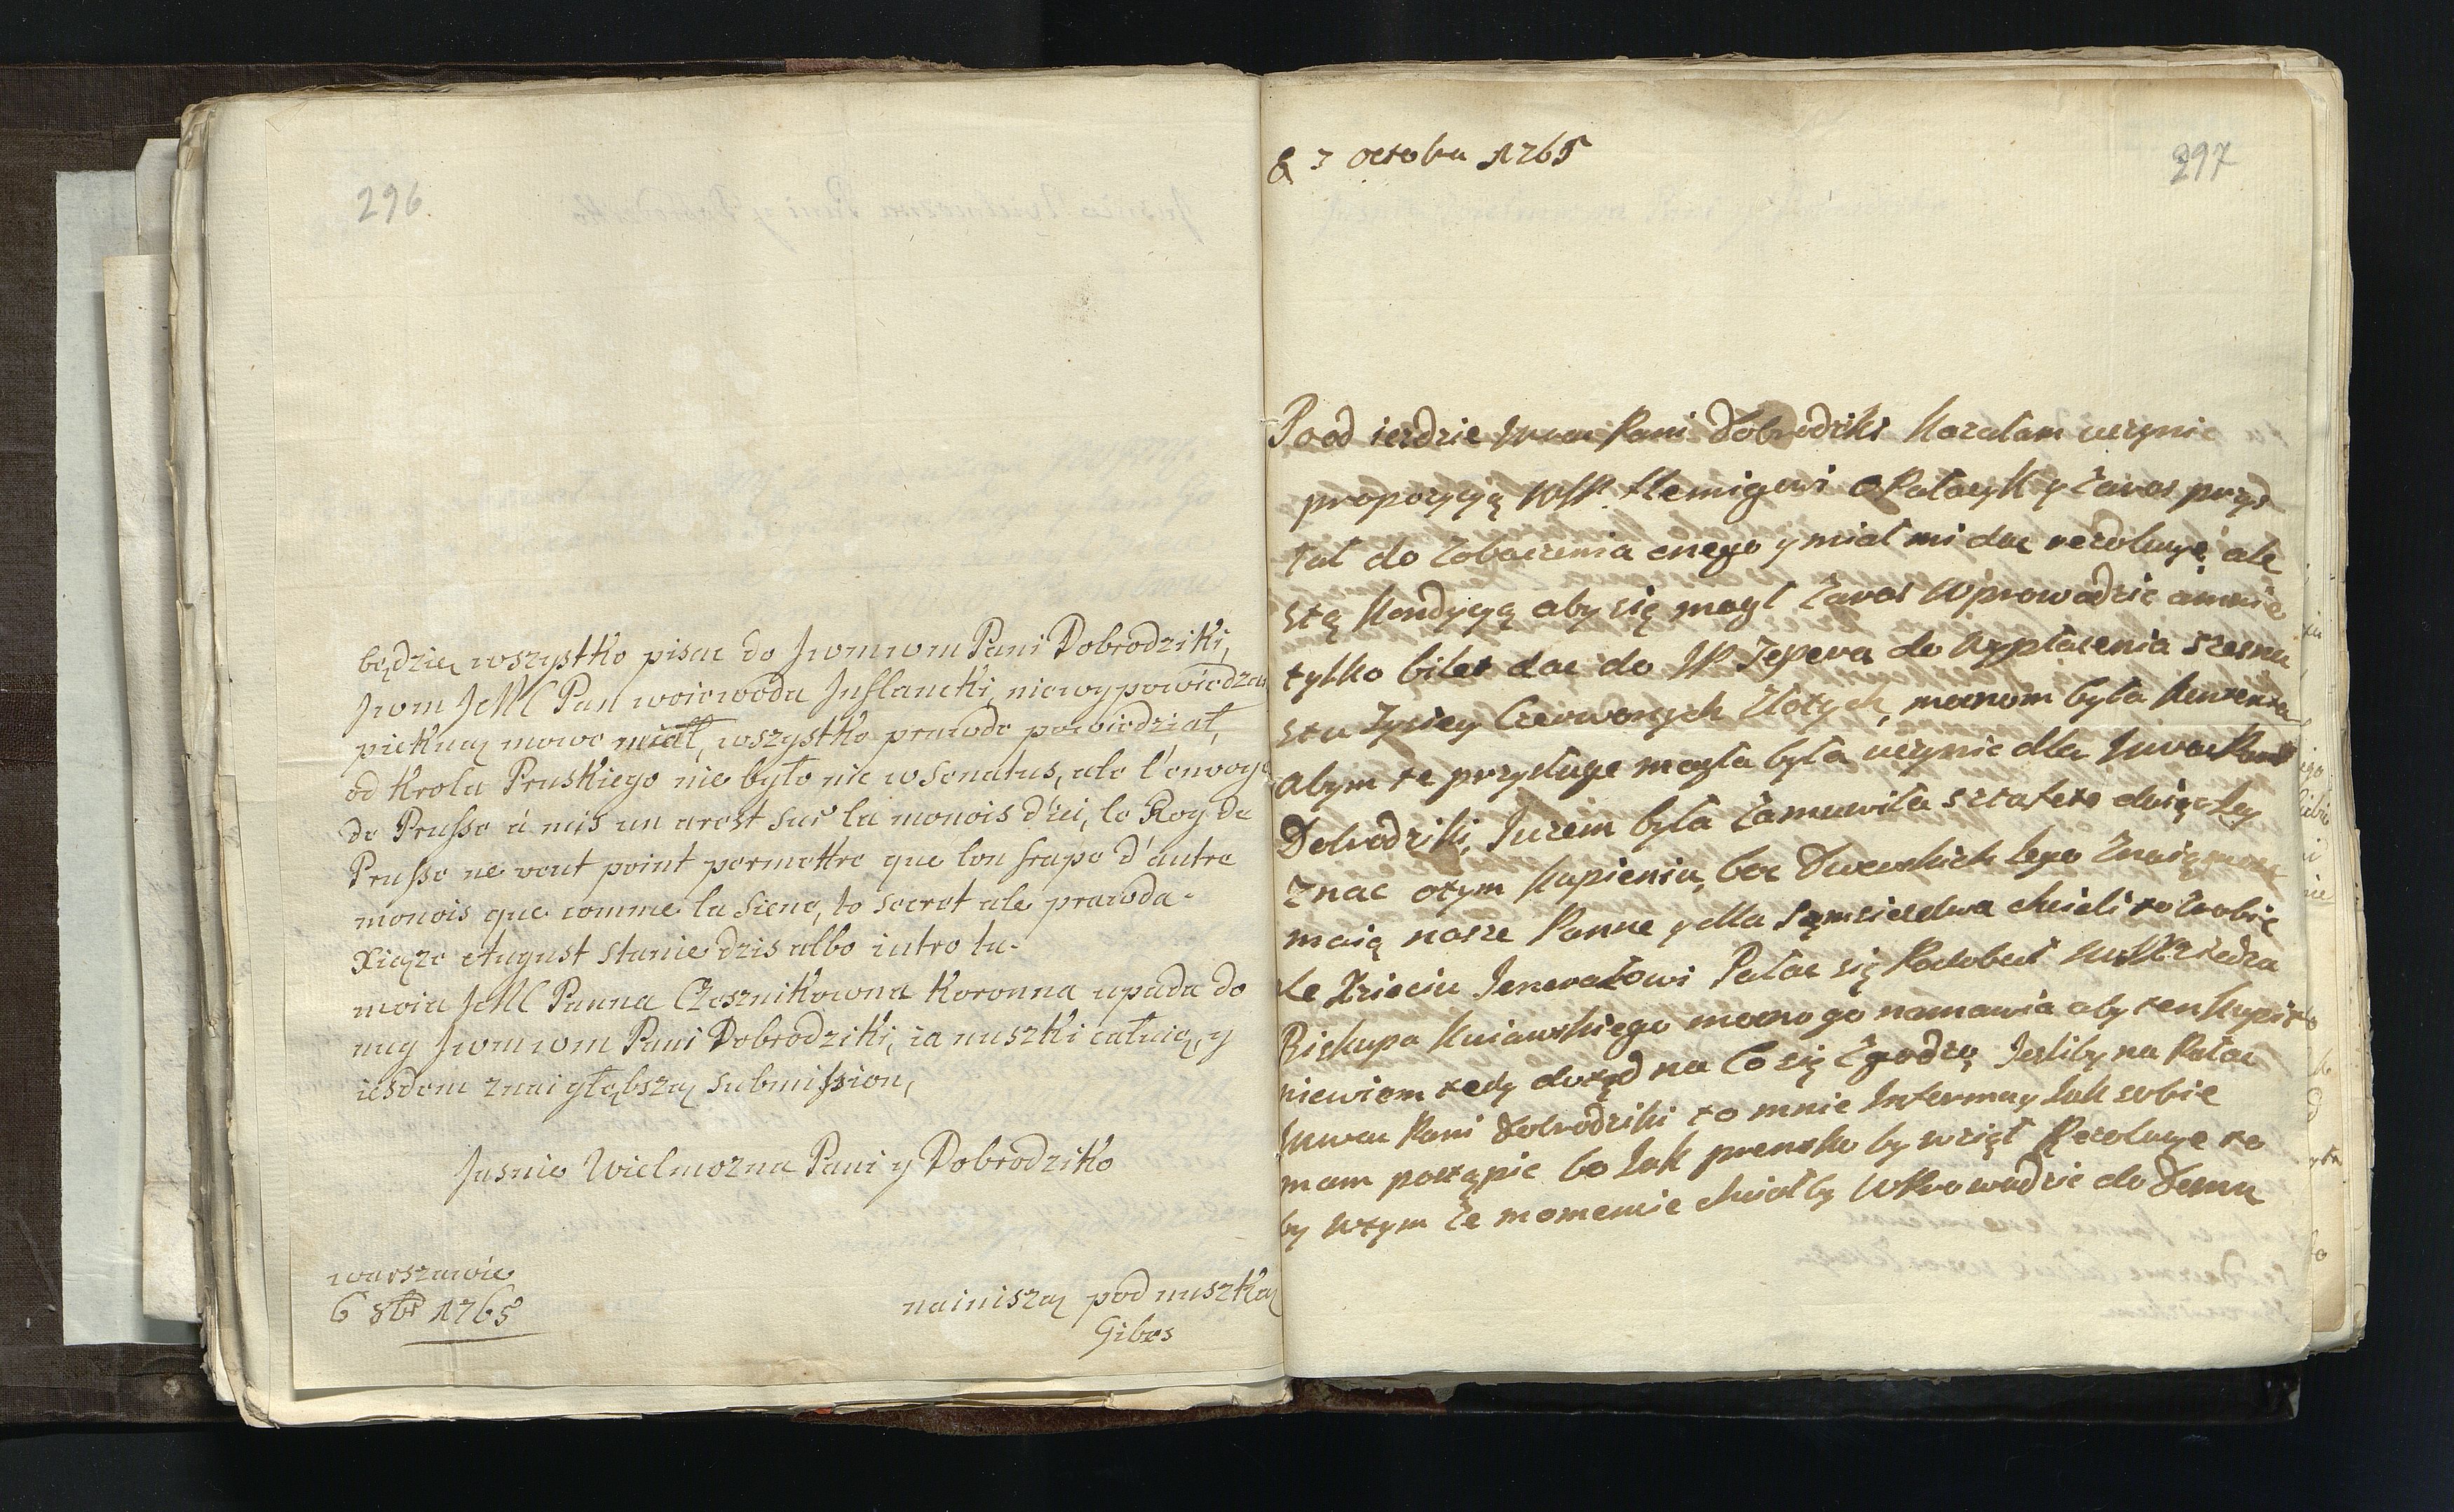 296.
będziem wszystko pisac do Jwmwm Pani Dobrodziki,
Jwm JeMl Pan woiewoda Inflancki, niewypowiedzan
pieknaz mowe miał, wszystko prawde powiedział,
od Krola Pruskiego nie było nic w senatus, ale l'envoye
de Prusse à mis un arest sur la monois d'ici, le Roy de
Prusse ne veut point permettre que lon frape d'autre
monois que comme la siene, to secret ale prawda.
Xiąze August stanie dzis albo iutro tu.
moia JeMl Panna Czesznikowna Koronna upada do
nug Jwmwm Pani Dobrodziki, ia nuszki całuią, y
iesdem znaigłębszaz submission,
Jasnie Wielmozna Pani y Dobrodziko
warszawie
6 8br 1765
nainiszaz podnuszkaz
Gibes
297
d 7 octobra 1765
Po od iezdzie Jmwm Pani Dobrodziki Kazałam uczynic
propozycyją WJP. Flemigowi o Pałacyk y Zaras przys
tał do Zobaczenia onego y miał mi dac rezolucye ale
stą Kondycyą aby się mogł Zaras Wprowadzic a mnie
tylko bilet dac do JP Tepera do Wypłacenia szesnu
stu Tysiecy Czerwonych Złotych, mocnom była kontenta
abym te przysługe mogła była uczynic dla Jmwm Pani
Dobrodziki, Jużem była Zamuwiła sztafete daiąc Jey
Znac otym Kupieniu, boc Dworskich tego Znaią
maią nasze Panne y dla Sąmsiedstwa chcieli to Zrobic
Le Xzieciu Jenerałowi Pałac się Podobał
Biskupa Kuiawskiego mocno go namawia aby ten Kupił to
niewiem tedy dotąd na Co się Zgodzą Jesliby na Pałac
Jmwm Pani Dobrodziki to mnie Informuy Jak sobie
mam postąpic bo Jak prentko by wziął Rezolucye to
by wtym Ze momencie chciałby Wprowadzic do Domu